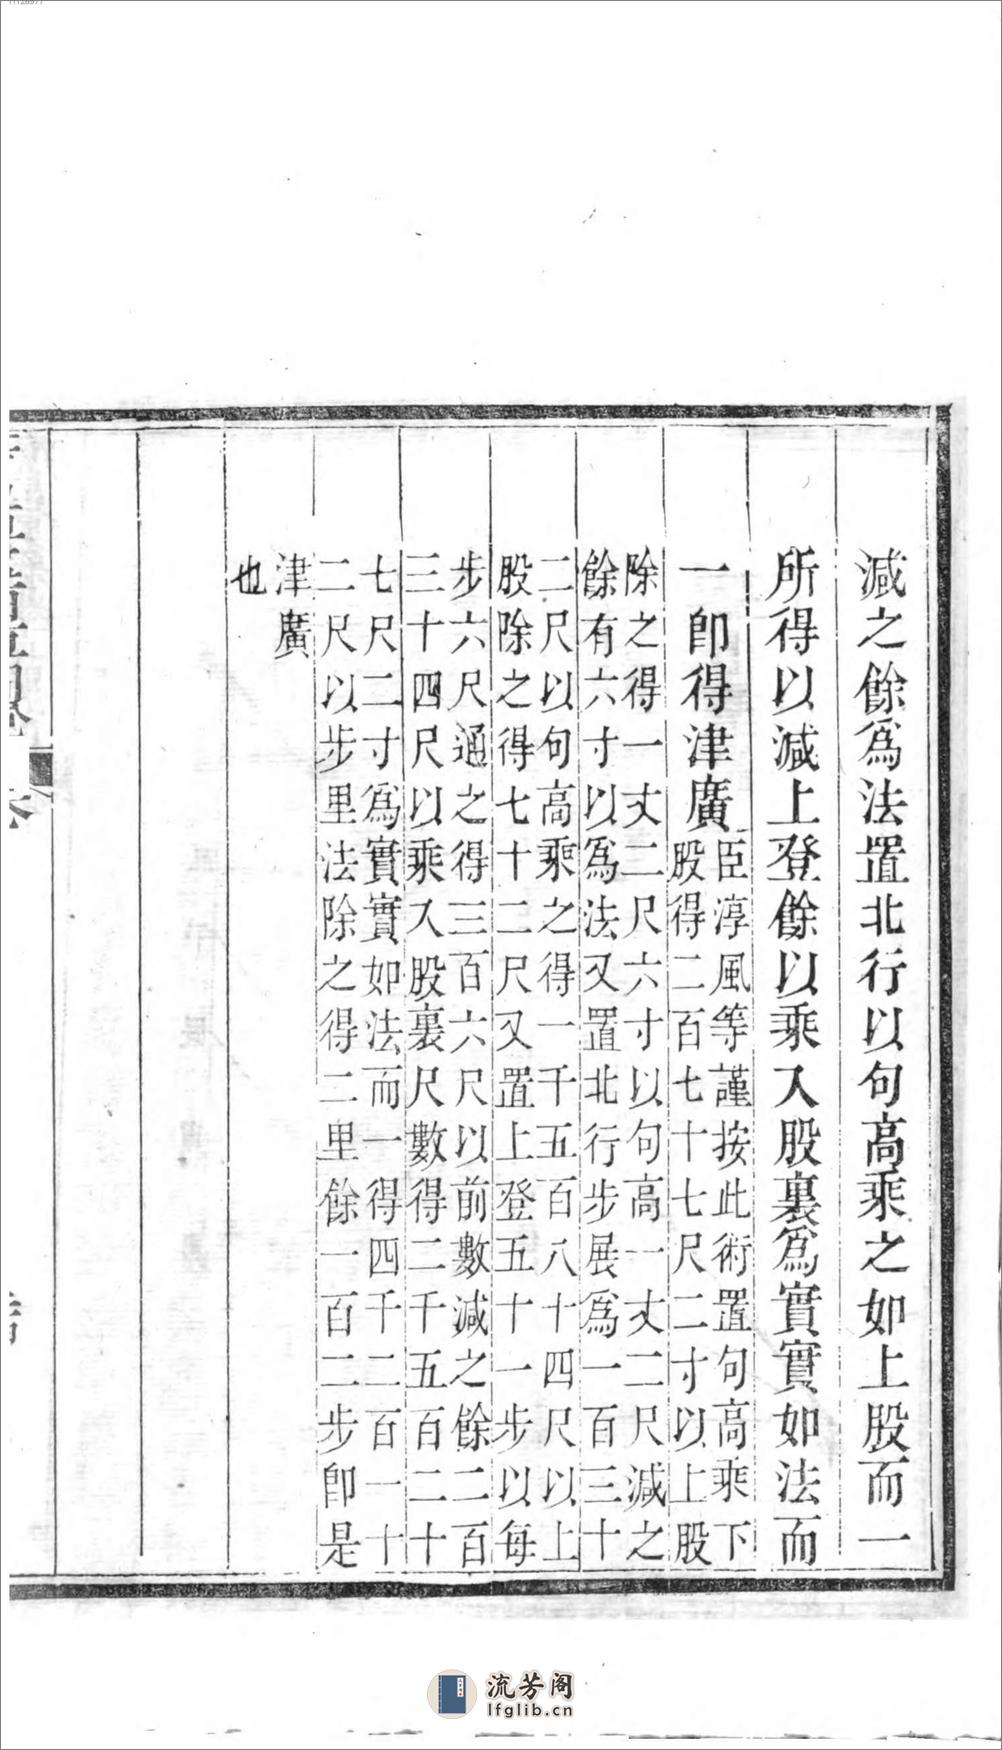 減之餘為法置北行以句高乘之如上股而一
所得以減上登餘以乘入股裏為實實如法而
一卽得津廣
臣淳風等謹按此術置句高乘下
股得二百七十七尺二寸以上股
除之得一丈二尺六寸以句高一丈二尺減之
餘有六寸以為法又置北行步展為一百三十
二尺以句高乘之得一千五百八十四尺以上
股除之得七十二尺又置上登五十一步以每
步六尺通之得三百六尺以前數減之餘二百
三十四尺以乘入股裏尺數得二千五百二十
七尺二寸為實實如法而一得四千二百一十
二尺以步里法除之得二里餘一百二步卽是
津廣
也
流芳阁
lfglib.cn